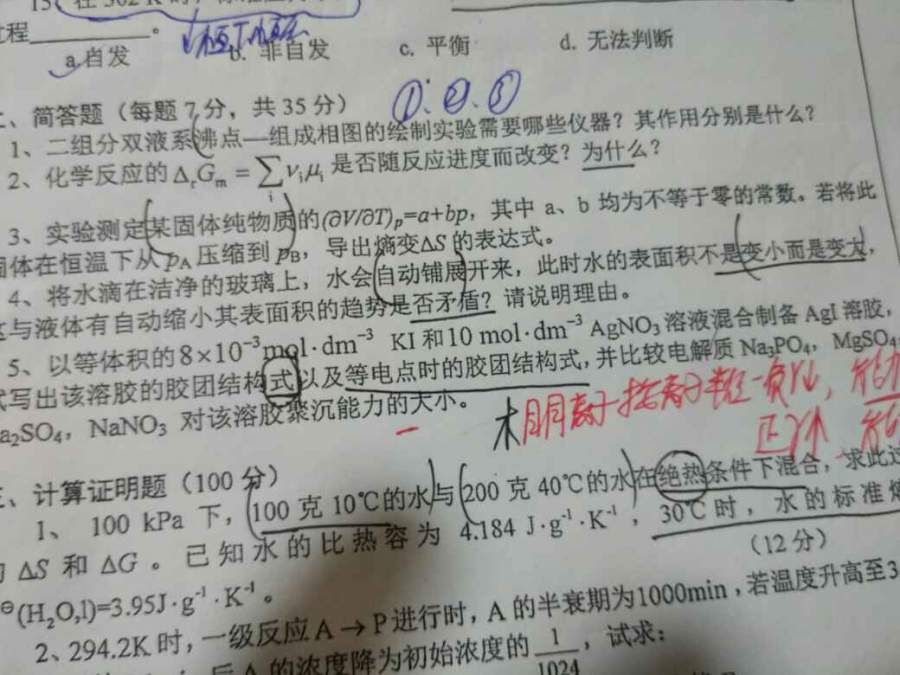 过程________。
a. 自发 b. 非自发 c. 平衡 d. 无法判断
二、简答题（每题 7 分，共 35 分） ①、②、③
1、二组分双液系沸点—组成相图的绘制实验需要哪些仪器？其作用分别是什么？
2、化学反应的 ΔrGm = ∑νiμi 是否随反应进度而改变？为什么？
i
3、实验测定某固体纯物质的(∂V/∂T)p=a+bp，其中 a、b 均为不等于零的常数。若将此
固体在恒温下从 pA 压缩到 pB，导出熵变ΔS 的表达式。
4、将水滴在洁净的玻璃上，水会自动铺展开来，此时水的表面积不是变小而是变大，
这与液体有自动缩小其表面积的趋势是否矛盾？请说明理由。
5、以等体积的 8×10⁻³mol·dm⁻³ KI 和10 mol·dm⁻³ AgNO₃ 溶液混合制备 AgI 溶胶，
试写出该溶胶的胶团结构式以及等电点时的胶团结构式，并比较电解质 Na₃PO₄，MgSO₄
Na₂SO₄，NaNO₃ 对该溶胶聚沉能力的大小。
三、计算证明题（100 分）
1、 100 kPa 下，100 克 10℃的水与 200 克 40℃的水在绝热条件下混合，求此过
的 ΔS 和 ΔG 。已知水的比热容为 4.184 J·g⁻¹·K⁻¹，30℃时，水的标准熵
（12 分）
⊖(H₂O,l)=3.95J·g⁻¹·K⁻¹。
2、294.2K 时，一级反应 A → P 进行时，A 的半衰期为1000min，若温度升高至3
后 A 的浓度降为初始浓度的 1/1024，试求：